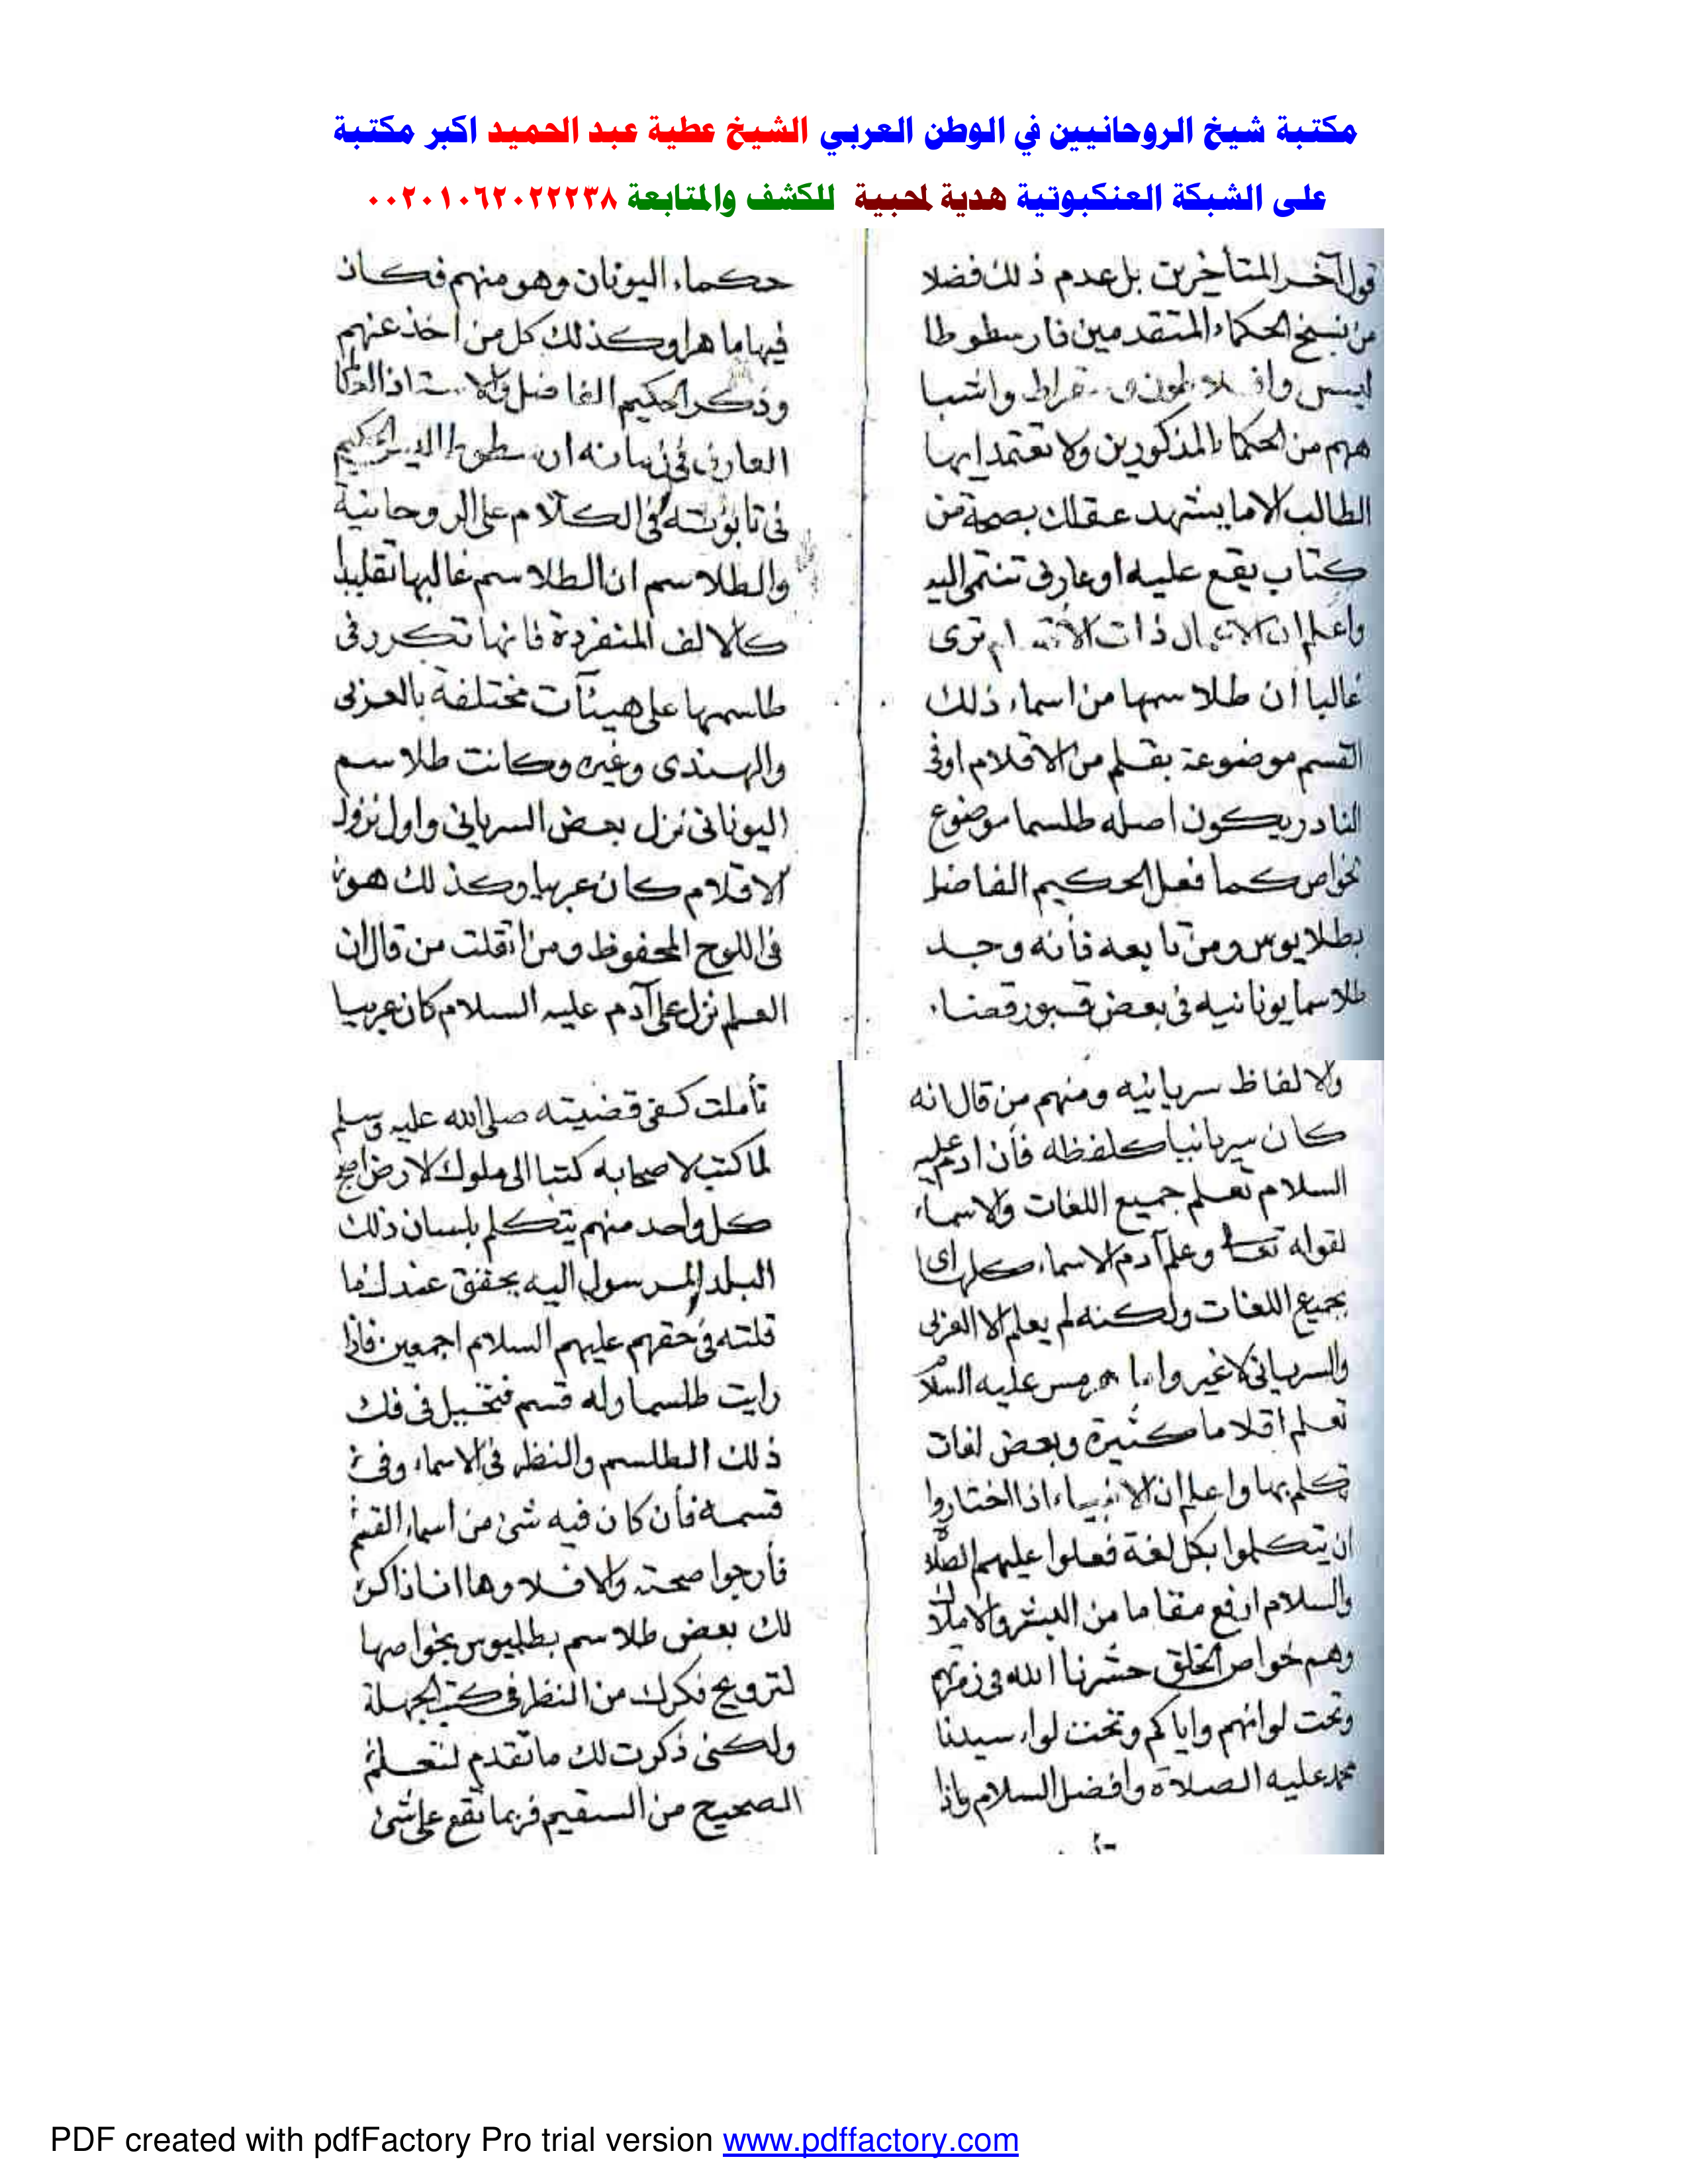 مكتبة شيخ الروحانيين في الوطن العربي الشيخ عطية عبد الحميد اكبر مكتبة
على الشبكة العنكبوتية هدية لمحبية للكشف والمتابعة ٠٠٢٠١٠٦٢٠٢٢٢٣٨
قول آخر المتأخرين بل عدم ذلك فضلا
من نسخ الحكماء المتقدمين فارسطوطا
ليس وافلاطون و سقراط واشبا
ههم من الحكماء المذكورين ولا تعتمد ايها
الطالب الا ما يشهد عقلك بصحة من
كتاب يقع عليه او عارف تنتمى اليه
واعلم ان ذات ترى
غالبا أن طلاسمها من اسماء ذلك
القسم موضوعة بقلم من الاقلام او فى
النادر يكون اصله طلسما موضوع
بخواص كما فعل الحكيم الفاضل
بطلايوس ومن تابعه فأنه وجد
طلاسما يونانيه فى بعض قبور قضاء
حكماء اليونان وهو منهم فكان
فيها ماهرا وكذلك كل من أخذ عنهم
وذكر الحكيم الفاضل والاستاذ
العارف فى زمانه الحكيم
فى الكلام على الروحانية
والطلاسم ان الطلاسم غالبها تقليبا
كالالف المنفردة فانها تكرر فى
طلسمها على هيئآت مختلفة بالعربى
والهندى وغيره وكانت طلاسم
اليونانى نزل بعض السريانى واول نزول
الاقلام كان عربيا وكذلك هو
فى اللوح المحفوظ ومن اتقلت من قال ان
العلم نزل على آدم عليه السلام كان عربيا
والالفاظ سريانيه ومنهم من قال انه
كان سريانيا كلفظه فأن ادم عليه
السلام تعلم جميع اللغات والاسماء
لقوله تعالى وعلم آدم الاسماء كلها اى
بجميع اللغات ولكنه لم يعلم الا العربى
والسريانى لا غير واما هرمس عليه السلام
تعلم اقلاما كثيرة وبعض لغات
تكلم بها واعلم ان الانبياء اذا اختاروا
ان يتكلموا بكل لغة فعلوا عليهم الصلاة
والسلام ارفع مقاما من البشر والاملاك
وهم خواص الخلق حشرنا الله فى زمرتهم
وتحت لوائهم واياكم وتحت لواء سيدنا
محمد عليه الصلاة وافضل السلام واذا
تأملت كفى قضيته صلى الله عليه وسلم
لما كتب لاصحابه كتبا الى ملوك الارض اصبح
كل واحد منهم يتكلم بلسان ذلك
البلد المرسول اليه يحقق عندك ما
قلته فى حقهم عليهم السلام اجمعين فاذا
رايت طلسما وله قسم فتخيل فى فك
ذلك الطلسم والنظر فى الاسماء وفى
قسمه فأن كان فيه شئ من اسماء القسم
فأرجوا صحته والا فلا وها انا ذاكر
لك بعض طلاسم بطليوس بخواصها
لترويح فكرك من النظر فى كتب الجهلة
ولكنى ذكرت لك ما تقدم لتعلم
الصحيح من السقيم فربما تقع على شئ
PDF created with pdfFactory Pro trial version www.pdffactory.com